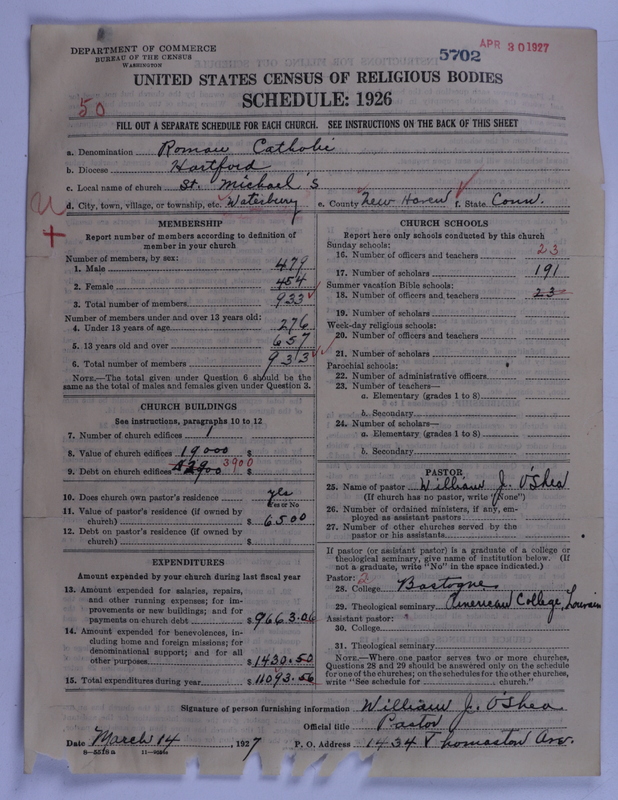 DEPARTMENT OF COMMERCE
BUREAU OF THE CENSUS
WASHINGTON
5702
APR 30 1927
UNITED STATES CENSUS OF RELIGIOUS BODIES
50
SCHEDULE: 1926
FILL OUT A SEPARATE SCHEDULE FOR EACH CHURCH. SEE INSTRUCTIONS ON THE BACK OF THIS SHEET
a. Denomination Roman Catholic
b. Diocese Hartford
c. Local name of church St. Michael's
d. City, town, village, or township, etc. Waterbury e. County New Haven f. State Conn.
MEMBERSHIP
Report number of members according to definition of
member in your church
Number of members, by sex:
1. Male 479
2. Female 454
3. Total number of members 933
Number of members under and over 13 years old:
4. Under 13 years of age 276
5. 13 years old and over 657
6. Total number of members 933
NOTE.—The total given under Question 6 should be the
same as the total of males and females given under Question 3.
CHURCH BUILDINGS
See instructions, paragraphs 10 to 12
7. Number of church edifices 1
8. Value of church edifices 19000 $
9. Debt on church edifices 3900 $
10. Does church own pastor's residence yes
Yes or No
11. Value of pastor's residence (if owned by
church) $ 6500
12. Debt on pastor's residence (if owned by
church) $
EXPENDITURES
Amount expended by your church during last fiscal year
13. Amount expended for salaries, repairs,
and other running expenses; for im-
provements or new buildings; and for
payments on church debt $ 9663.06
14. Amount expended for benevolences, in-
cluding home and foreign missions; for
denominational support; and for all
other purposes $ 1430.50
15. Total expenditures during year $ 11093.56
CHURCH SCHOOLS
Report here only schools conducted by this church
Sunday schools: 23
16. Number of officers and teachers
17. Number of scholars 191
Summer vacation Bible schools:
18. Number of officers and teachers 23
19. Number of scholars
Week-day religious schools:
20. Number of officers and teachers
21. Number of scholars
Parochial schools:
22. Number of administrative officers
23. Number of teachers—
a. Elementary (grades 1 to 8)
b. Secondary
24. Number of scholars—
a. Elementary (grades 1 to 8)
b. Secondary
PASTOR
25. Name of pastor William J. O'Shea
(If church has no pastor, write "None")
26. Number of ordained ministers, if any, em-
ployed as assistant pastors
27. Number of other churches served by the
pastor or his assistants
If pastor (or assistant pastor) is a graduate of a college or
theological seminary, give name of institution below. (If
not a graduate, write "No" in the space indicated.)
Pastor: 2
28. College Bastogne
29. Theological seminary American College, Louvain
Assistant pastor:
30. College
31. Theological seminary
NOTE.—Where one pastor serves two or more churches,
Questions 28 and 29 should be answered only on the schedule
for one of the churches; on the schedules for the other churches,
write "See schedule for church."
Signature of person furnishing information William J. O'Shea
Official title Pastor
Date March 14 1927 P. O. Address 1434 Thomaston Ave.